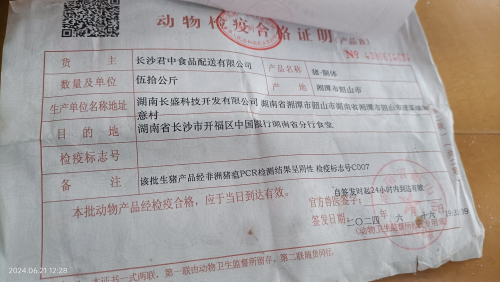 动物检疫合格证明(产品B)
货 主 长沙君中食品配送有限公司 产品名称 猪-胴体
数量及单位 伍拾公斤 产 地 湘潭市韶山市
生产单位名称地址 湖南长盛科技开发有限公司 湖南省湘潭市韶山市湖南省湘潭市韶山市
意村
目 的 地 湖南省长沙市开福区中国银行湖南省分行食堂
检疫标志号
备 注 该批生猪产品经非洲猪瘟PCR检测结果呈阴性 检疫标志号C007
本批动物产品经检疫合格,应于当日到达有效。
自签发时起24小时内到达有效
官方兽医签字:
签发日期:二〇二四 六
(动物卫生监督所
本证书一式两联,第一联由动物卫生监督所留存,第二联随货同行。
2024.06.21 12:28